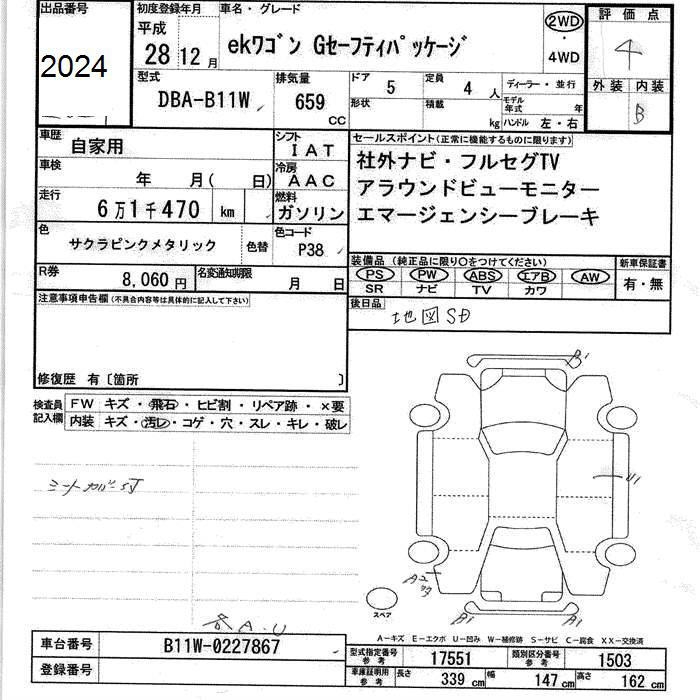 出品番号 初度登録年月 車名・グレード 2WD ・ 4WD 評価点
2024 平成 28 12月 ekワゴン Gセーフティパッケージ 4
外装 内装 B
型式 DBA-B11W 排気量 659 CC ドア 5 定員 4 人 ディーラー・並行
形状 積載 kg モデル年式 年 ハンドル 左・右
車歴 自家用 シフト IAT セールスポイント(正常に機能するものに限ります)
車検 年 月( 日) 冷房 AAC 社外ナビ・フルセグTV
走行 6万1千470 km 燃料 ガソリン アラウンドビューモニター
エマージェンシーブレーキ
色 サクラピンクメタリック 色替 色コード P38
装備品(純正品に限り○をつけてください) 新車保証書
PS PW ABS エアB AW 有・無
SR ナビ TV カワ
R券 8,060円 名変通知期限 月 日
後日品 地図SD
注意事項申告欄(不具合内容等は具体的に記入して下さい)
修復歴 有〔箇所 〕
検査員記入欄 FW キズ・飛石・ヒビ割・リペア跡・×要
内装 キズ・汚レ・コゲ・穴・スレ・キレ・破レ
シートカバーSJ
B1
U1
A2
スペア
B1 A1
各A.U
A-キズ E-エクボ U-凹み W-補修跡 S-サビ C-腐食 XX-交換済
車台番号 B11W-0227867 型式指定番号 参考 17551 類別区分番号 参考 1503
登録番号 車庫証明用 参考 長さ 339 cm 幅 147 cm 高さ 162 cm